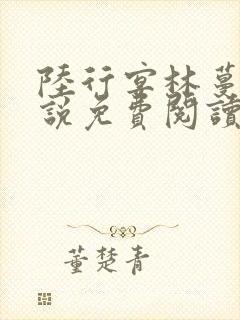 陸行宴林蔓
說免費閱讀
董楚青